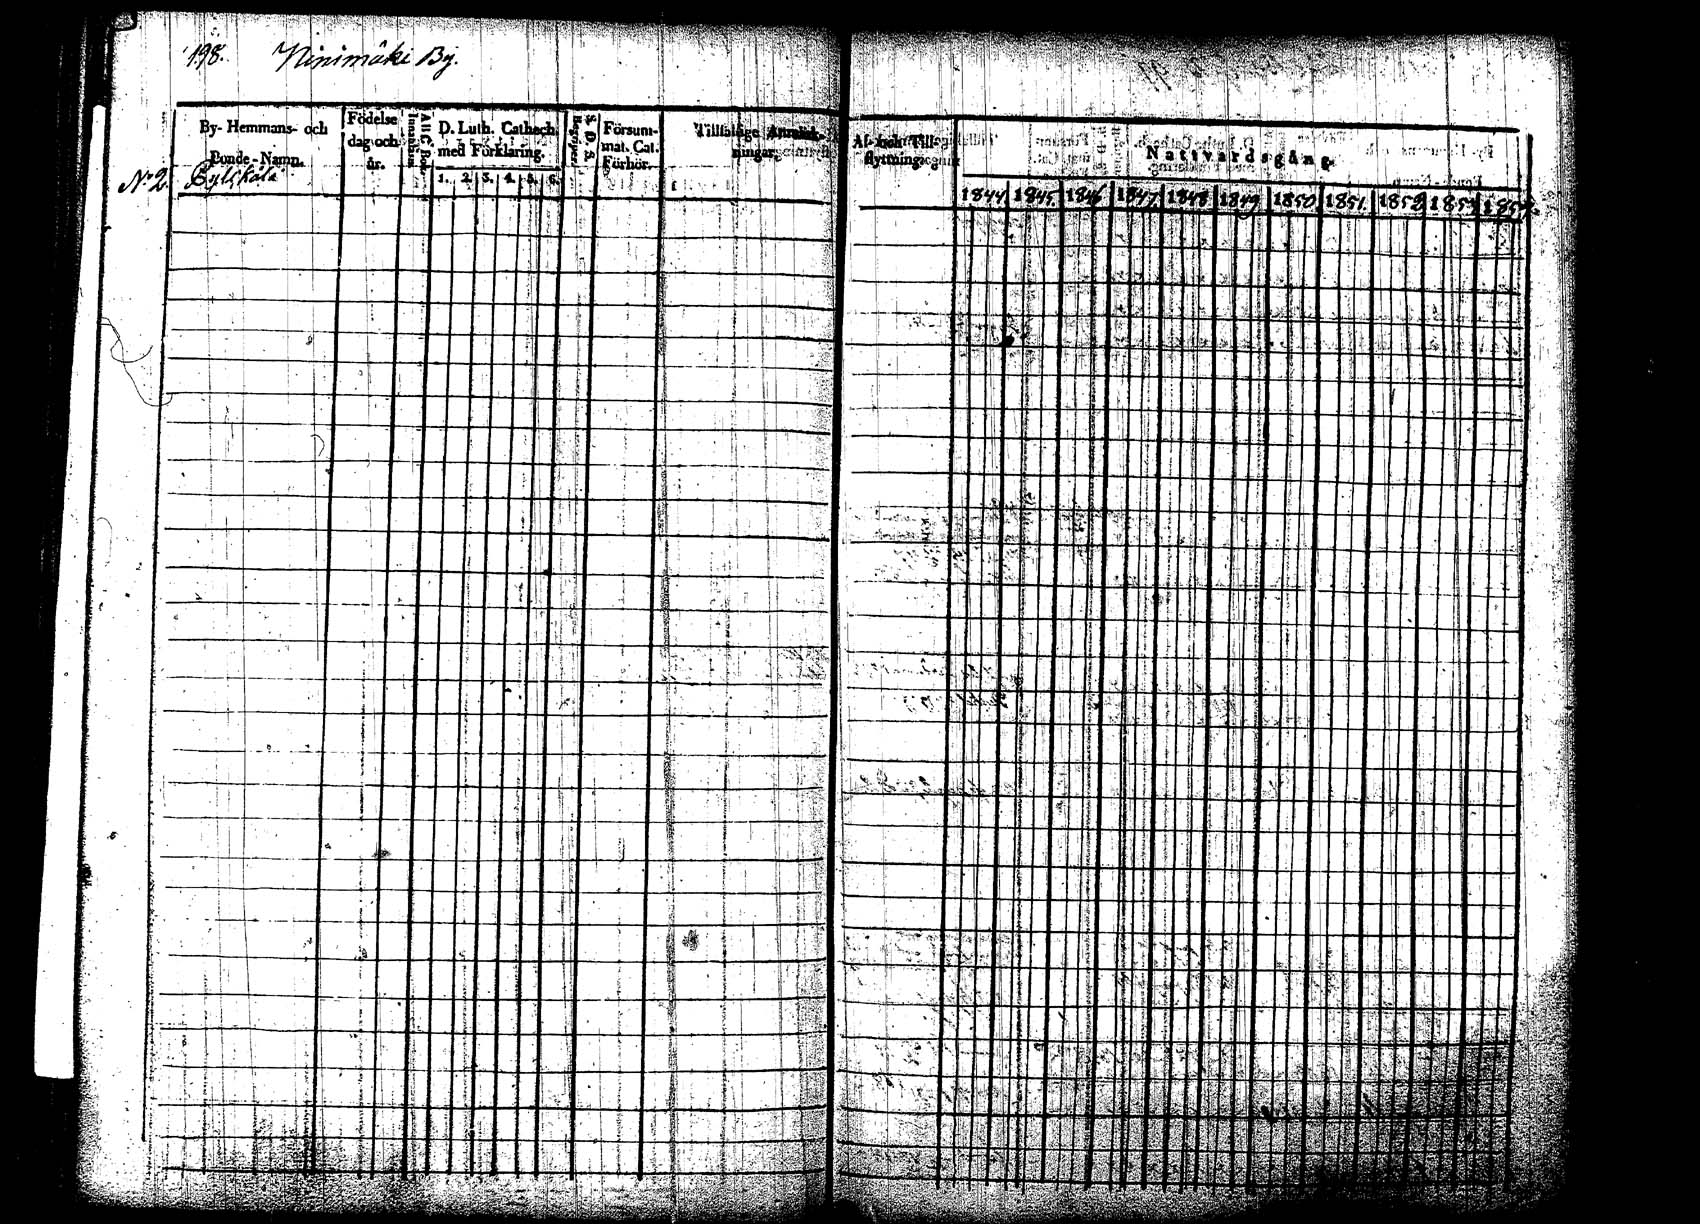 198. Ninimäki By.
By- Hemmans- och Bonde-Namn.
Födelse dag och år.
D. Luth. Cathech. med Förklaring.
1. 2. 3. 4. 5. 6.
S. D. S. Begrepet.
Försummat. Cat. Förhör.
Tillfälige Anmärkningar.
Af- och Tillflyttningar
Nattvardsgång.
1844 1845 1846 1847 1848 1849 1850 1851 1852 1853 1854
No 2.